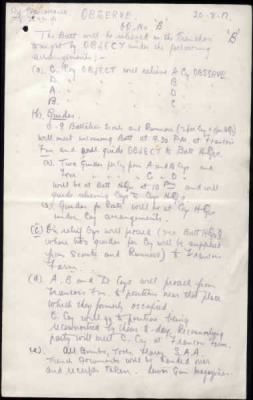 OBSERVE. 20-8-17.
O.O. No 'B' 'B'
The Batt will be relieved in the trenches
tonight by OBJECT under the following
arrangements:-
(a). C. Coy OBJECT will relieve A Coy OBSERVE
D. B
A. D
B. C
(b). Guides.
8 Battalion Scouts and Runners
will meet incoming Batt at 9.30 P.M. at Francois
Fm and guide OBJECT to Batt HdQrs.
Two Guides for A and B Coys and
Four C. D.
will be at Batt HdQrs at 10 Pm and will
guide relieving Coys to Coy HdQrs.
Guides for Platts will be at Coy HdQrs
under Coy arrangements.
(c) relief Coys will proceed via Batt HdQrs
where two guides per Coy will be supplied
from Scouts and Runners to Francois
Farm.
(d) A. B and D Coys will proceed from
Francois Fm. to positions near that place
which they formerly occupied.
C. Coy will go to position being
reconnoitred by them to-day. Reconnoitring
party will meet C. Coy at Francois Farm.
(e). All Bombs, Tools, S.A.A.
Trench documents will be handed over
and receipts taken. Lewis Gun magazines